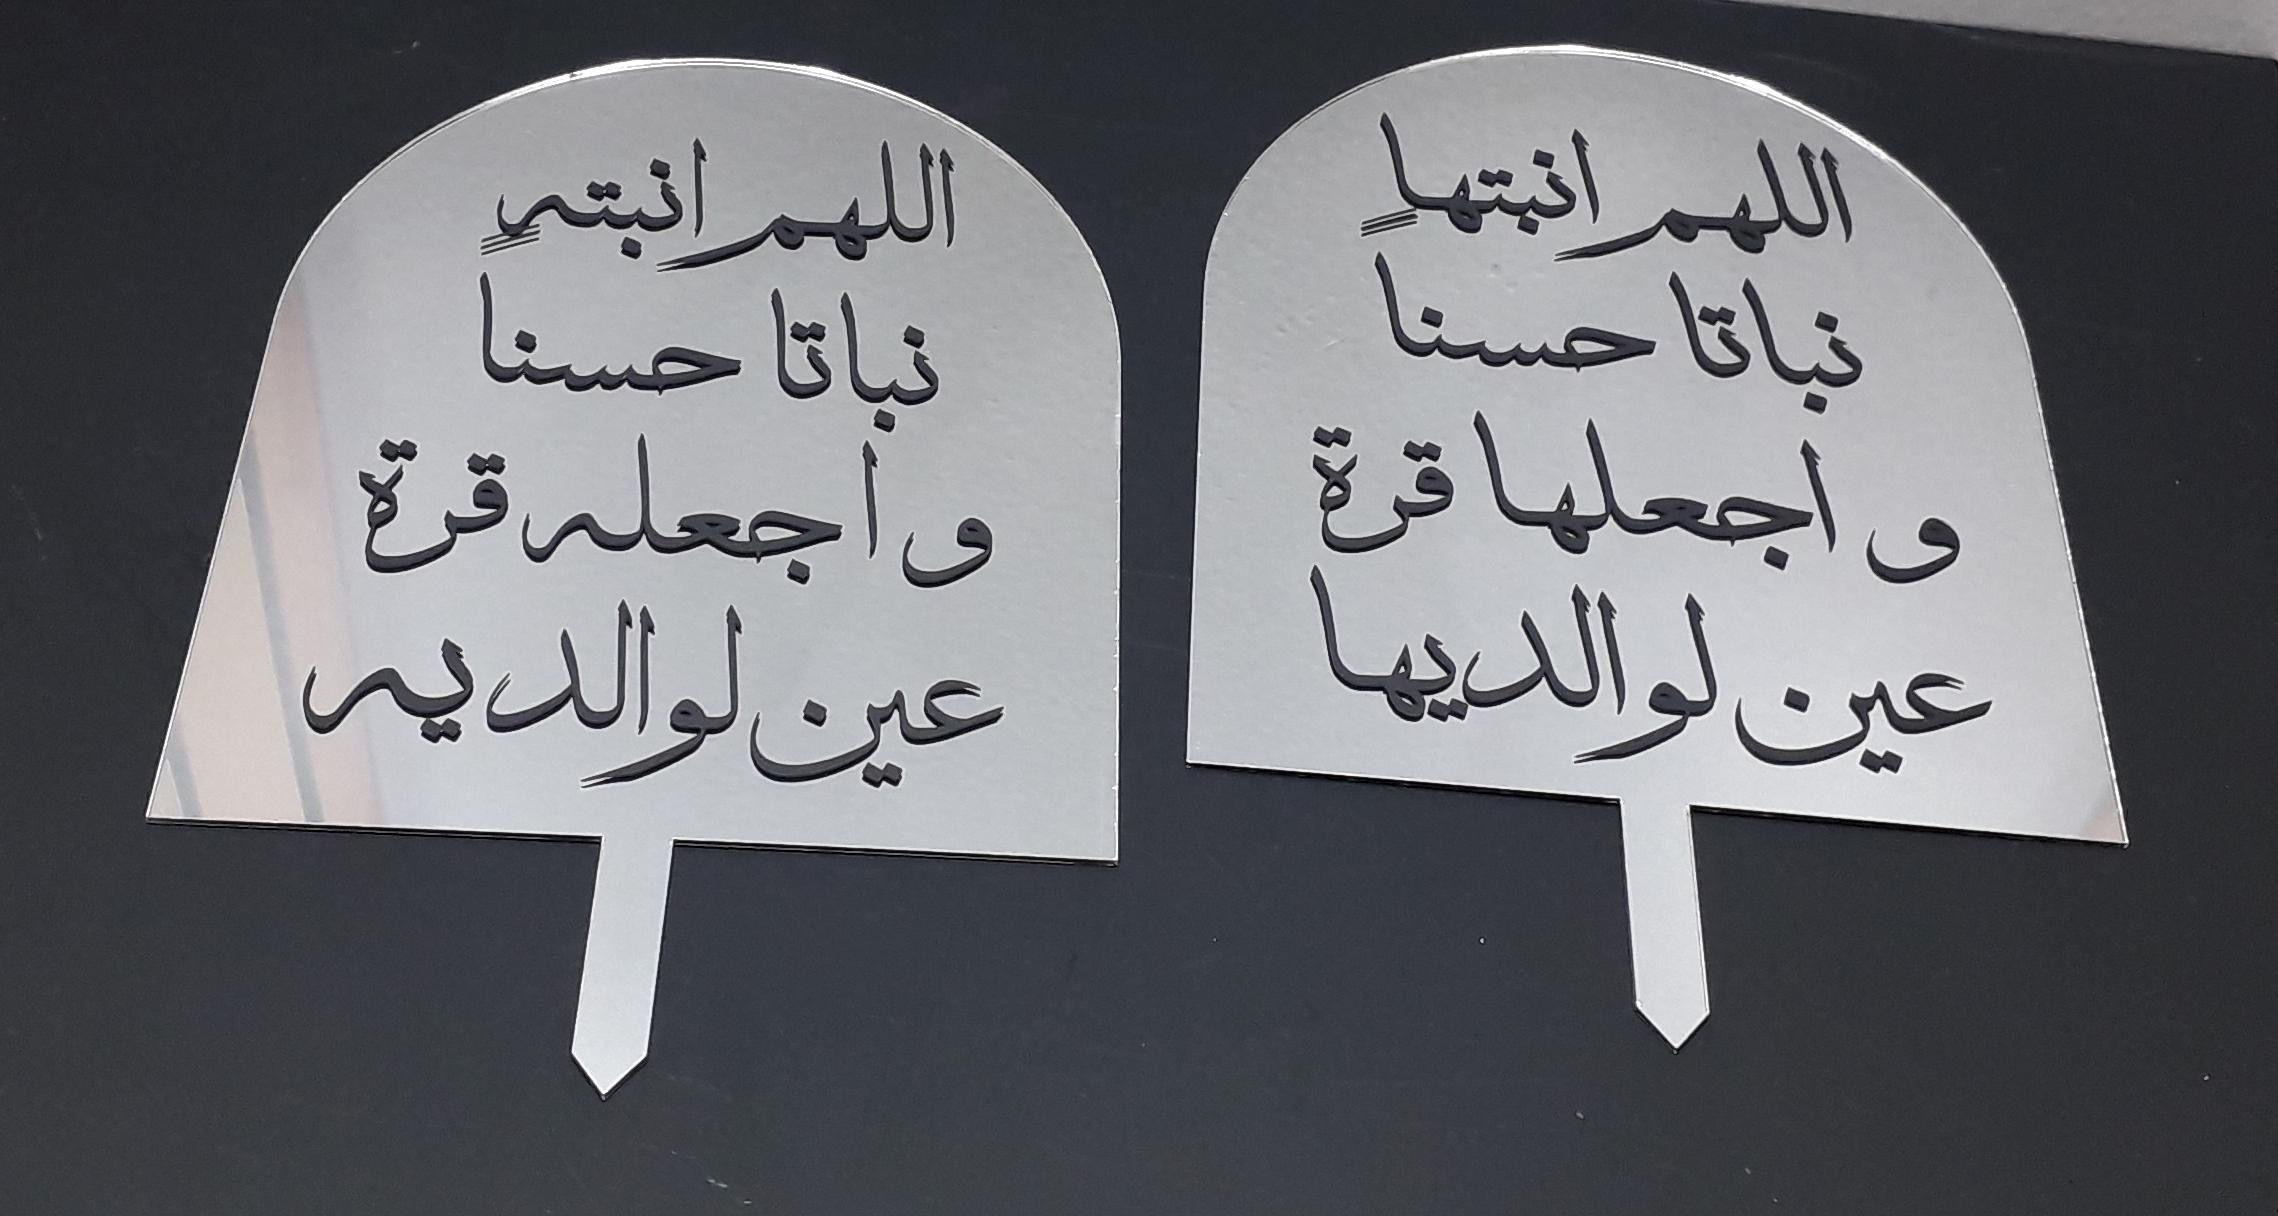 اللهم انبتها
نباتا حسنا
و اجعلها قرة
عين لوالديها
اللهم انبته
نباتا حسنا
و اجعله قرة
عين لوالديه